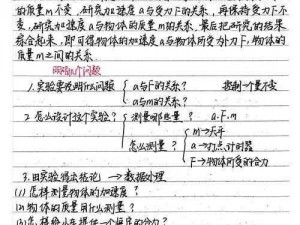 的质量m不变,研究加速度a与受力F的关系,再保持受力F不
变,研究加速度a与物体的质量m的关系,最后把研究的结果
综合起来,即可得物体的加速度a与物体所受外力F,物体的
质量m之间的关系。
两个问题
1.实验要说明什么问题 { a与F的关系? 控制一个量不变
a与m的关系?
2.怎么设计这个实验? { 测量哪些量? a.F.m
怎么测量? { m→天平
a→打点计时器
F→物体所受的合力
3.由实验得出结论→数据处理
(1)怎样测量物体的加速度?
(2)物体的质量用什么测量?
(3)怎样给小车提供一个恒定的合力?